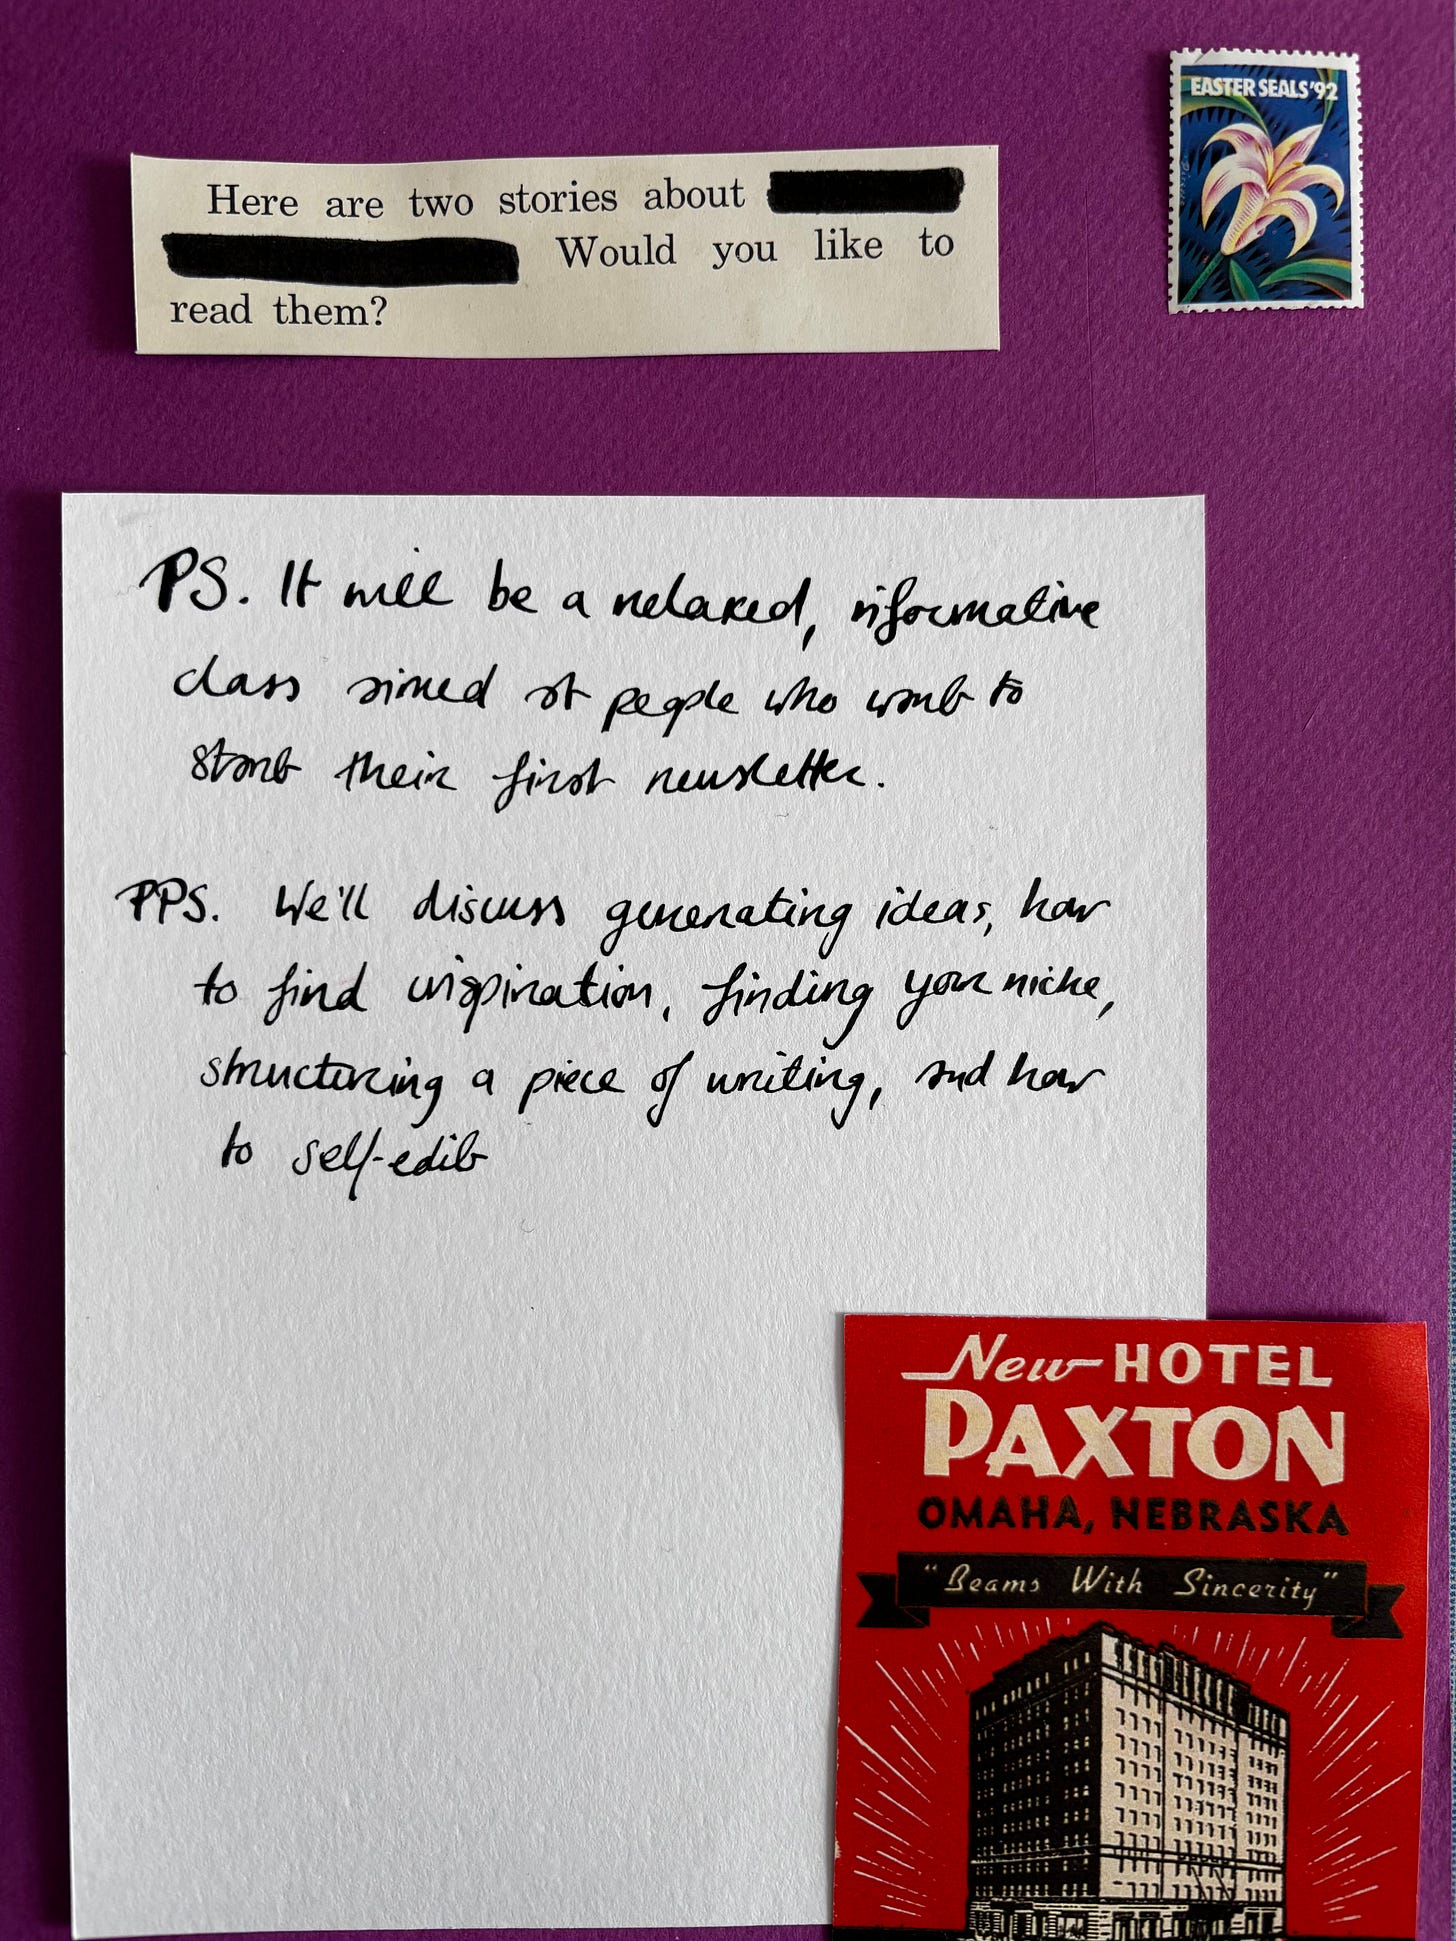 EASTER SEALS '92
Here are two stories about
Would you like to
read them?
PS. It will be a relaxed, informative
class aimed at people who want to
start their first newsletter.
PPS. We'll discuss generating ideas, how
to find inspiration, finding your niche,
structuring a piece of writing, and how
to self-edit
New HOTEL
PAXTON
OMAHA, NEBRASKA
"Beams With Sincerity"